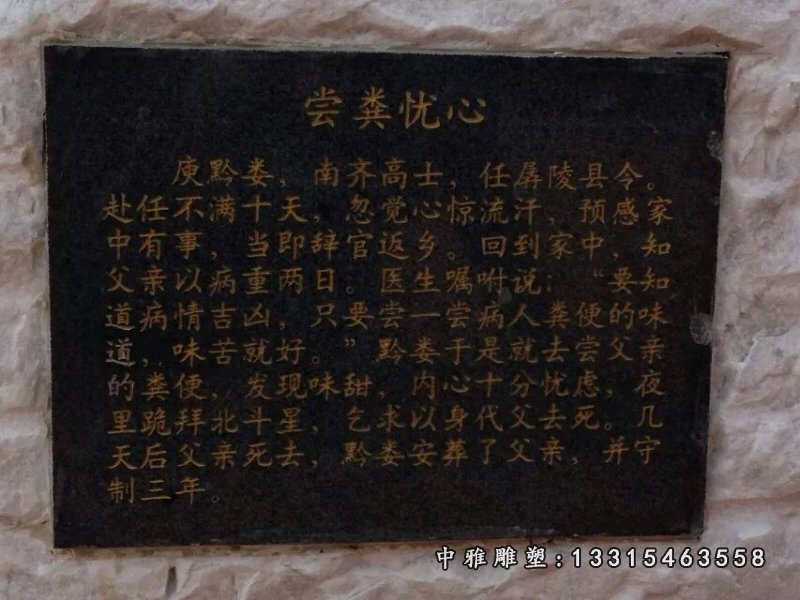 尝粪忧心
庾黔娄，南齐高士，任孱陵县令。
赴任不满十天，忽觉心惊流汗、预感家
中有事，当即辞官返乡。回到家中，知
父亲以病重两日。医生嘱咐说：“要知
道病情吉凶，只要尝一尝病人粪便的味
道，味苦就好。”黔娄于是就去尝父亲
的粪便，发现味甜，内心十分忧虑，夜
里跪拜北斗星，乞求以身代父去死。几
天后父亲死去，黔娄安葬了父亲，并守
制三年。
中雅雕塑:13315463558